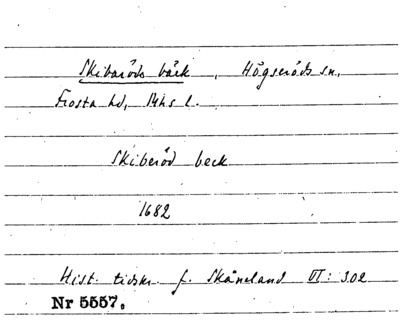 Skibaröds bäck, Högseröds sn,
Frosta hd, Mhs l.
Skiberöd beck
1682
Hist. tidskr. f. Skåneland VI: 302
Nr 5557.